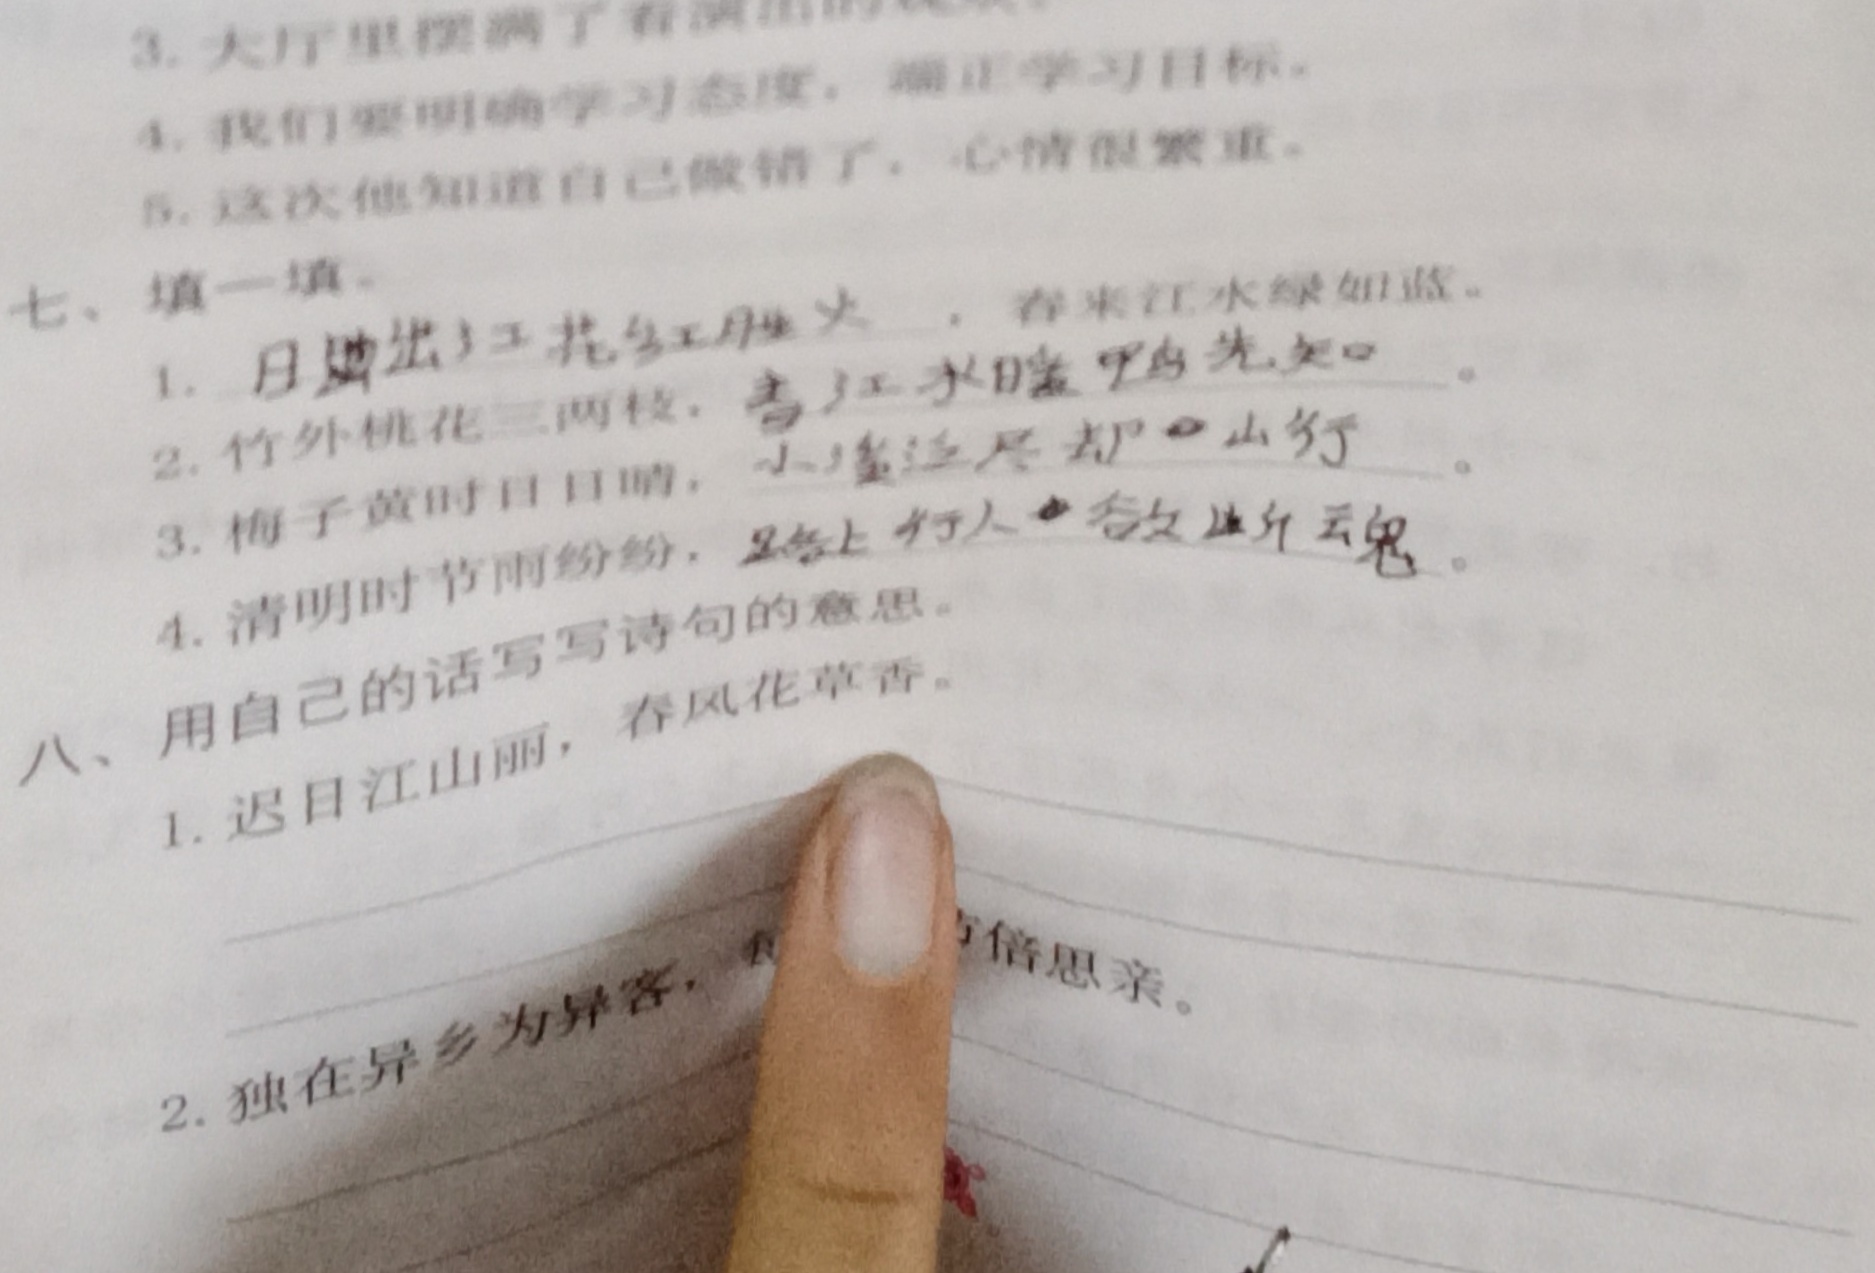 3. 大厅里摆满了看演出的观众。
4. 我们要明确学习态度，端正学习目标。
5. 这次他知道自己做错了，心情很繁重。
七、填一填。
1. 日出江花红胜火，春来江水绿如蓝。
2. 竹外桃花三两枝，春江水暖鸭先知。
3. 梅子黄时日日晴，小溪泛尽却山行。
4. 清明时节雨纷纷，路上行人欲断魂。
八、用自己的话写写诗句的意思。
1. 迟日江山丽，春风花草香。
2. 独在异乡为异客，倍思亲。